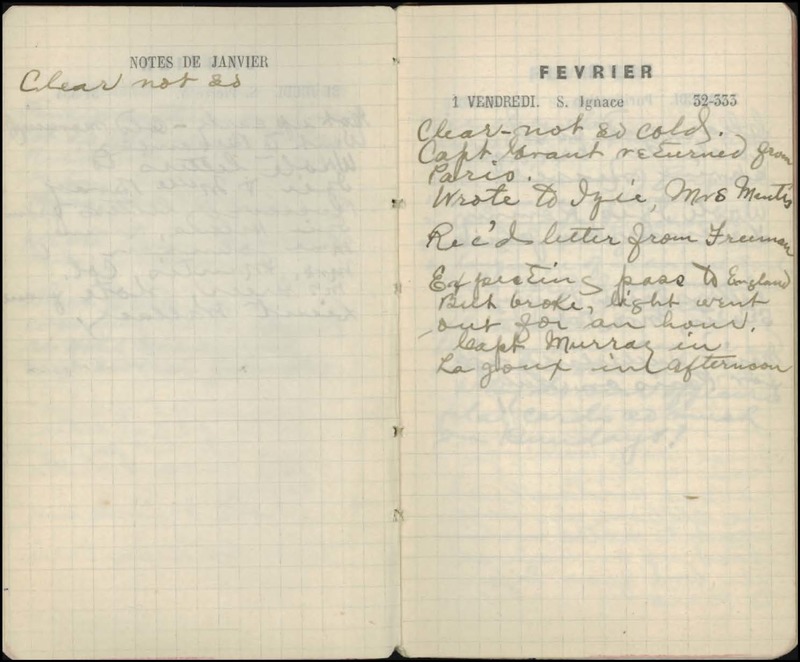 NOTES DE JANVIER
Clear not so
FEVRIER
1 VENDREDI. S. Ignace 32-333
Clear - not so cold.
Capt Grant returned from
Paris.
Wrote to Izie, Mrs Mentis
Rec'd letter from Freeman
Expecting pass to England
But broke, light went
out for an hour.
Capt Murray in
La in afternoon